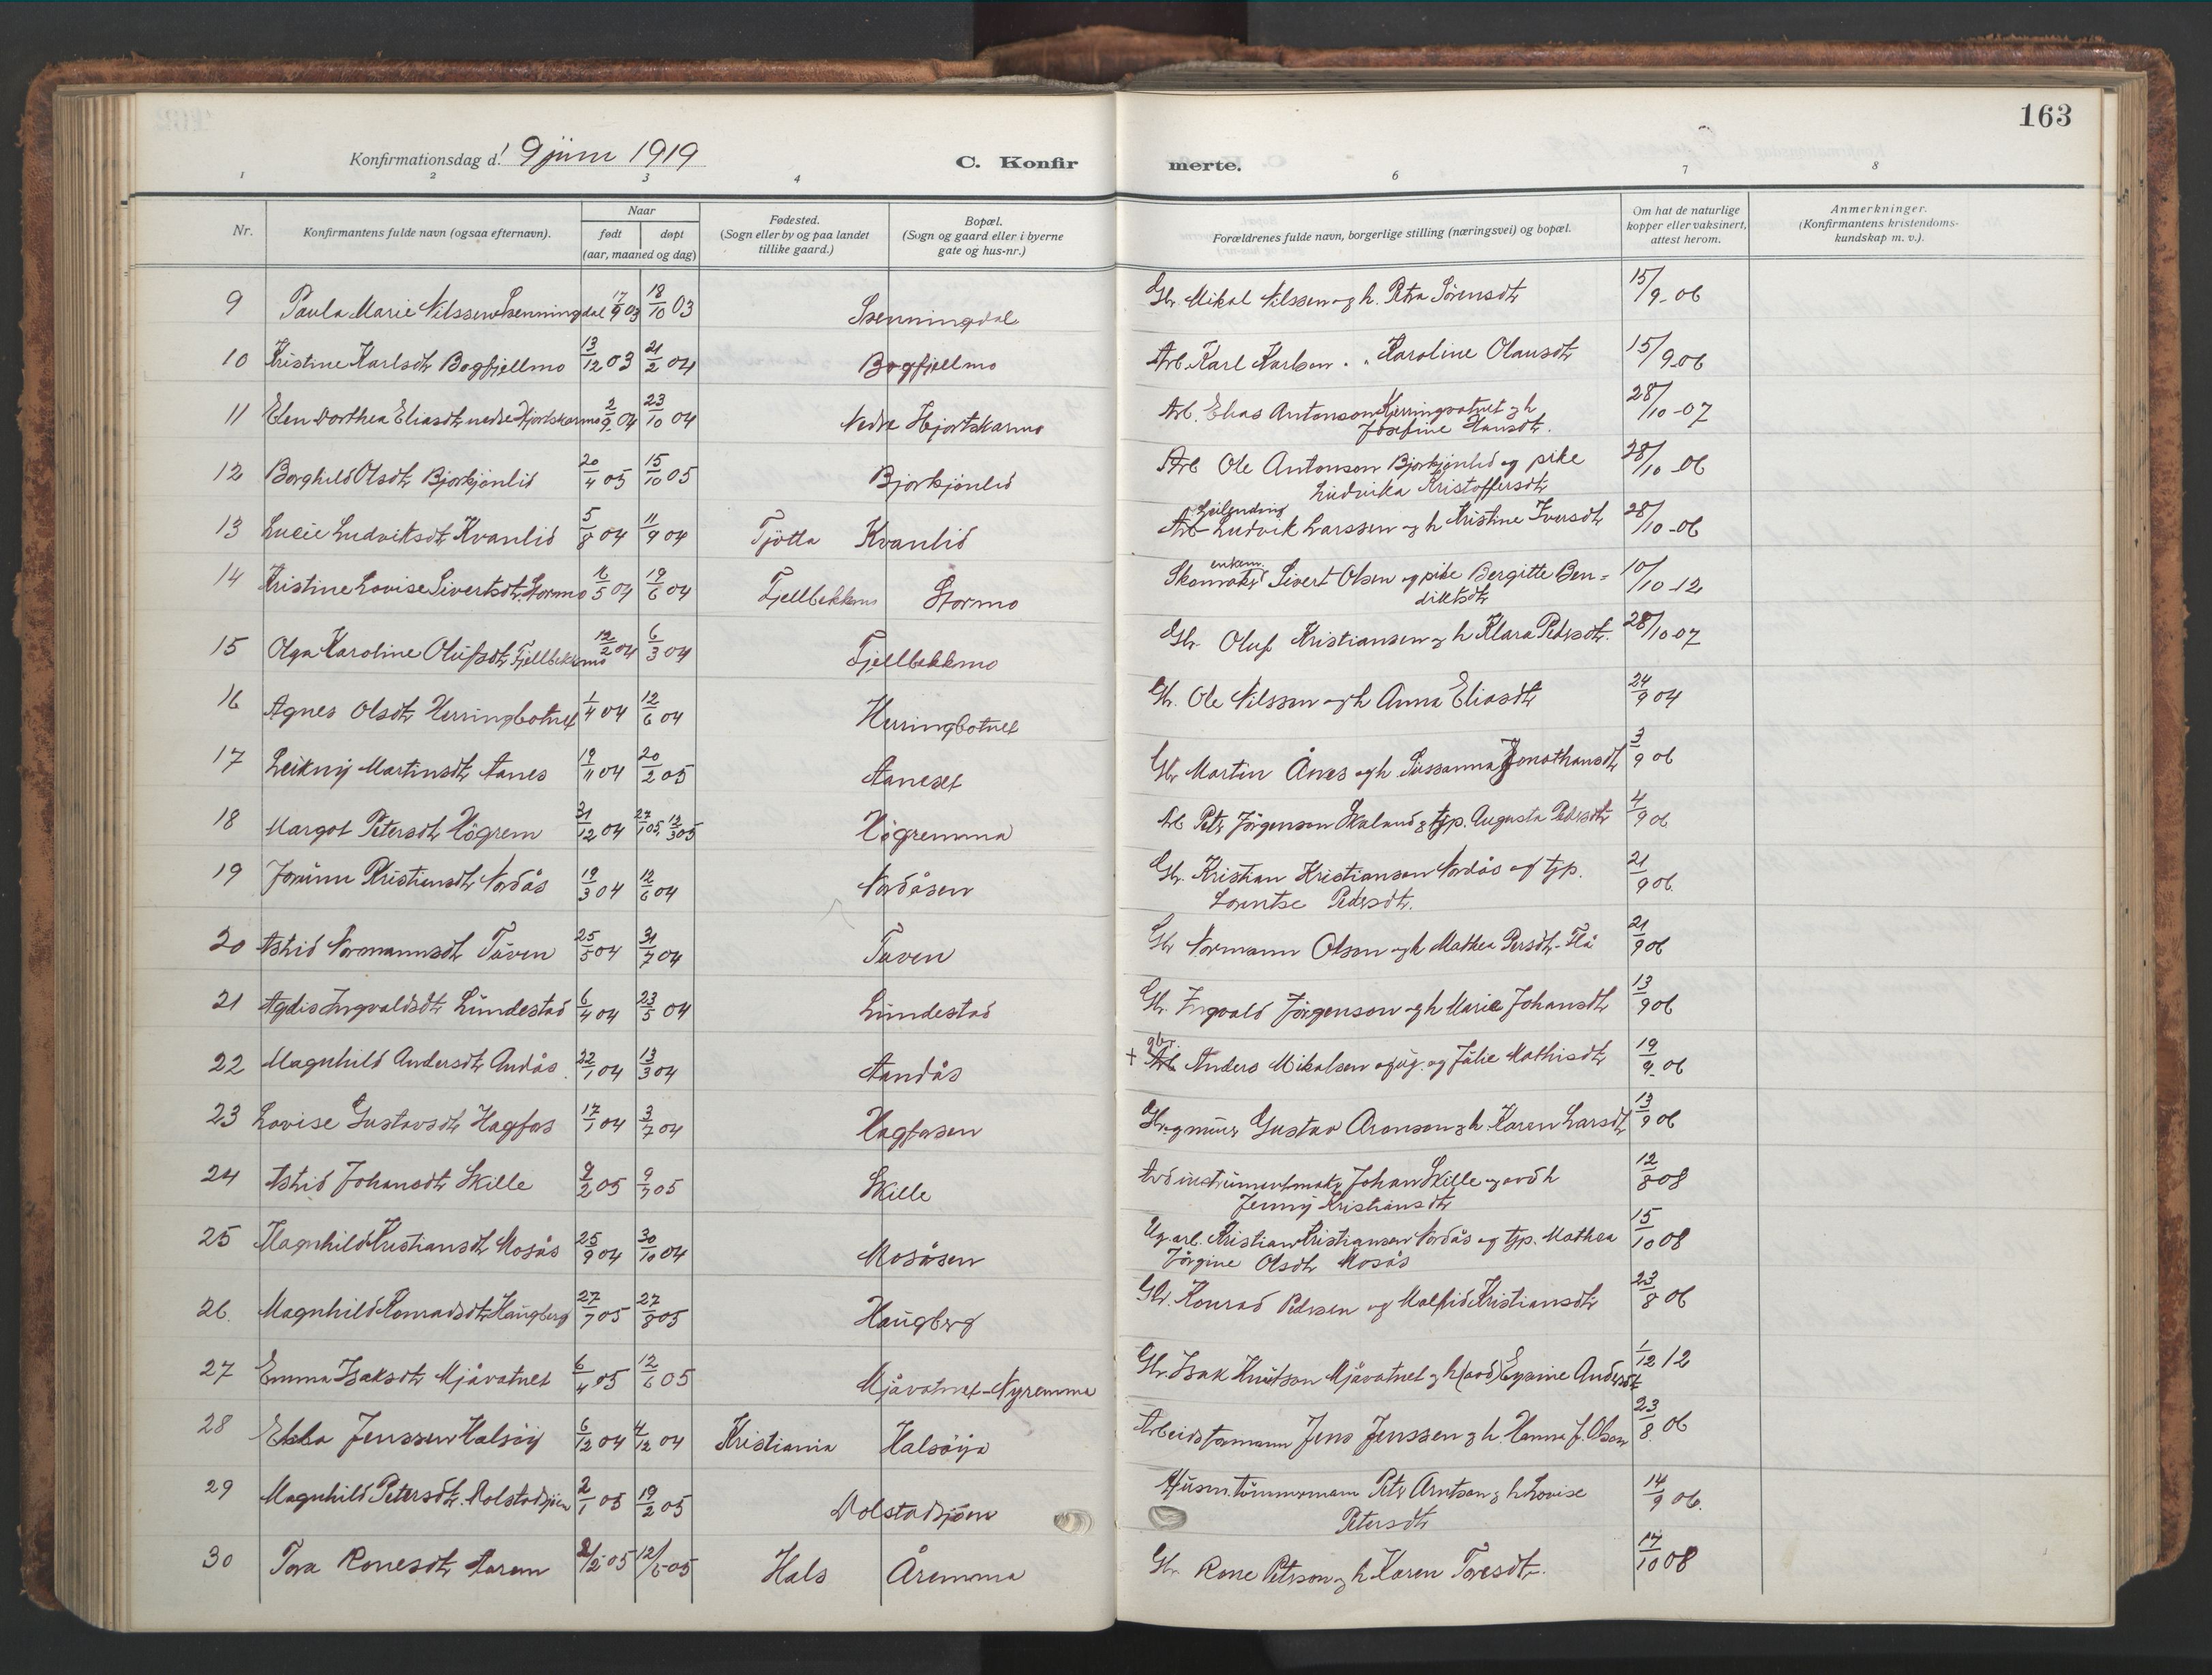 163
Konfirmationsdag d. 9 juni 1919
C. Konfir merte.
1 2 3 4 6 7 8
Nr.
Konfirmantens fulde navn (ogsaa efternavn).
Naar
født døpt
(aar, maaned og dag)
Fødested.
(Sogn eller by og paa landet
tillike gaard.)
Bopæl.
(Sogn og gaard eller i byerne
gate og hus-nr.)
Forældrenes fulde navn, borgerlige stilling (næringsvei) og bopæl.
Om hat de naturlige
kopper eller vaksinert,
attest herom.
Anmerkninger.
(Konfirmantens kristendoms-
kundskap m. v.).
9 Paula Marie Nilssen 17/9 03 18/10 03 Gbr. Mikal Nilssen og h. Petra Sörensdtr 15/9-06
10 Kristine Karlsdtr Bogfjellmo 13/12 03 21/2 04 Bogfjellmo Arb. Karl Karlsen " " Karoline Olausdtr 15/9-06
11 Elen Dorthea Eliasdtr nedre Hjortskarmo 2/9 04 23/10 04 Nedre Hjortskarmo Arb. Elias Antonson Kjerringvatnet og h
Josefine Hansdtr. 28/10-07
12 Borghild Olsdtr Bjorkjönlid 20/4 05 15/10 05 Bjorkjönlid Arb Ole Antonson Bjorkjönlid og pike
Ludvika Kristoffersdtr 28/10-06
13 Lucie Ludviksdtr Kvanlid 5/8 04 11/9 04 Tjötta Kvanlid Arb Ludvik Larssen og h Kristine Iversdtr 28/10-06
14 Kristine Lovise Sivertsdtr Stormo 16/5 04 19/6 04 Fjellbekkmo Stormo Skomaker enkem. Sivert Olsen og pike Bergitte Ben-
diktsdtr 10/10-12
15 Olga Karoline Olufsdtr Fjellbekkmo 12/2 04 6/3 04 Fjellbekkmo Gbr. Oluf Kristiansen og h Klara Pedersdtr. 28/10-07
16 Agnes Olsdtr Herringbotnet 1/4 04 12/6 04 Herringbotnet Gbr. Ole Nilssen og h Anna Eliasdtr 24/9 04
17 Leikny Martinsdtr Aanes 19/11 04 20/2 05 Aaneset Gbr Martin Ånes og h Susanna Jonathansdtr 3/9 06
18 Margot Petersdtr Högrem 31/12 04 27/1 05 12/3 05 Högremma Arb Petr Jörgenson Skaland og tjp. Augusta Pedersdtr 4/9 06
19 Jorunn Kristiansdtr Nordås 19/3 04 12/6 04 Nordåsen Gbr. Kristian Kristianson Nordås og tjp.
Lorentse Pedersdtr. 21/9 06
20 Astrid Normannsdtr Tuven 25/5 04 31/7 04 Tuven Gbr Normann Olson og h Mathea Persdtr-Flå 21/9 06
21 Agdis Ingvaldsdtr Lundestad 6/4 04 23/5 04 Lundestad Gbr. Ingvald Jörgenson og h Marie Johansdtr 13/9 06
22 Magnhild Andersdtr Andås. 22/1 04 13/3 04 Aandås + Arb gbr. Anders Mikalsen og Julie Mathisdtr 19/9-06
23 Lovise Gustavsdtr Hagfas 17/1 04 3/7 04 Hagfasen Gbr. og murer Gustav Aronson og h. Karen Larsdtr 13/9 06
24 Astrid Johansdtr Skille 9/2 05 9/7 05 Skille Avd instrumentmaker Johan Skille og avd h
Jenny Kristiansdtr 12/8 08
25 Magnhild Kristiansdtr Mosås 25/9 04 30/10 04 Mosåsen Ug. arb. Kristian Kristiansen Nordås og tjp. Mathea
Jörgine Olsdtr Mosås 15/10 08
26. Magnhild Konradsdtr Haugberg 27/7 05 27/8 05 Haugberg Gbr. Konrad Pedersen og Malfrid Kristiansdtr 23/8 06
27 Emma Isaksdtr Mjåvatnet 6/4 05 12/6 05 Mjåvatnet-Nyremma Gbr. Isak Knutson Mjåvatnet og h (avd) Andersdtr 1/12 12
28 Ebba Jenssen Halsöy 6/12 04 4/12 04 Kristiania Halsöya Arbeidsformann Jens Jenssen og h. Hanna J. Olsen 23/8 06
29 Magnhild Petersdtr. Dolstadsjöen 2/1 05 19/2 05 Dolstadsjöen Husm. tömmermann Petr Arntson og h Lovise
Petersdtr 14/9 06.
30 Tora Ronesdtr Aarem 2/2 05 Hals Åremma Gbr Rone Peterson og h Karen Toresdtr. 14/10 08